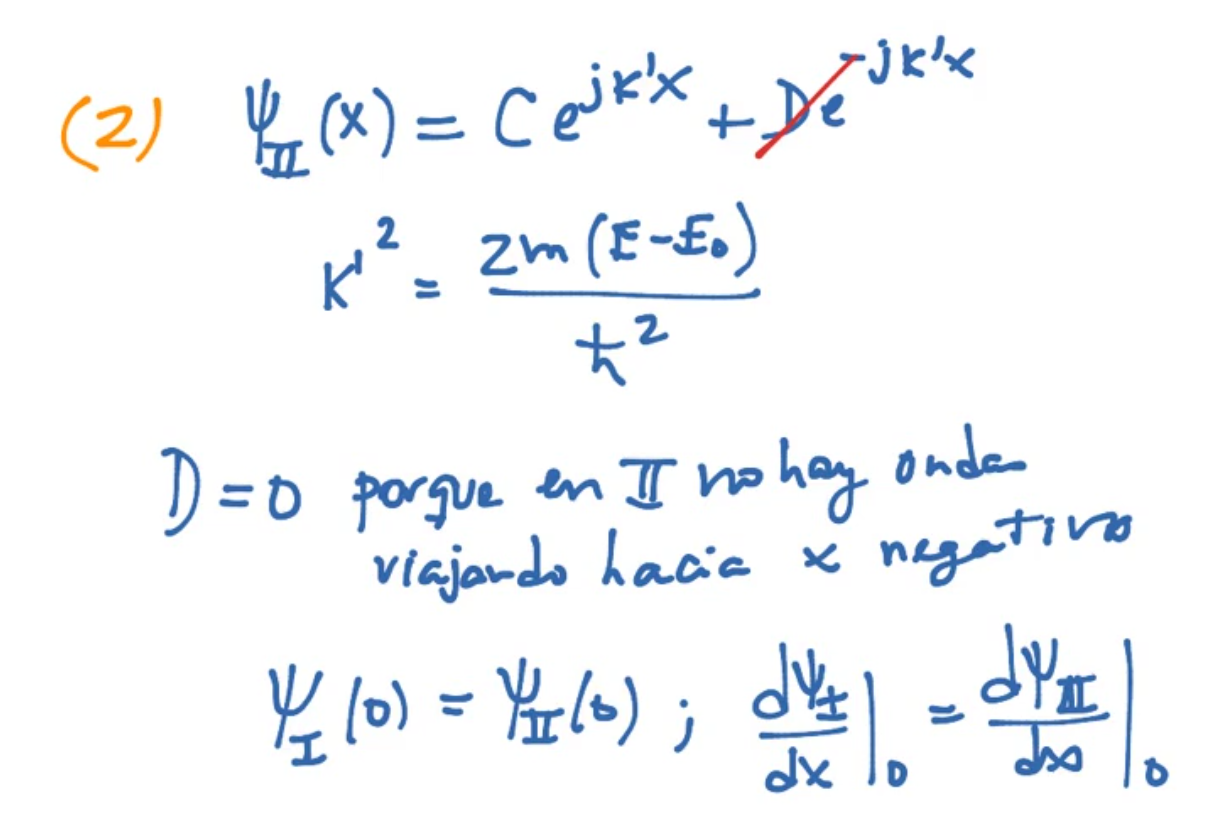 (2) Ψ_II (x) = C e^{jk'x} + D e^{-jk'x}
k'^2 = 2m (E-E₀) / ħ^2
D = 0 porque en II no hay onda
viajando hacia x negativo
Ψ_I (0) = Ψ_II (0) ; dΨ_I/dx |_0 = dΨ_II/dx |_0